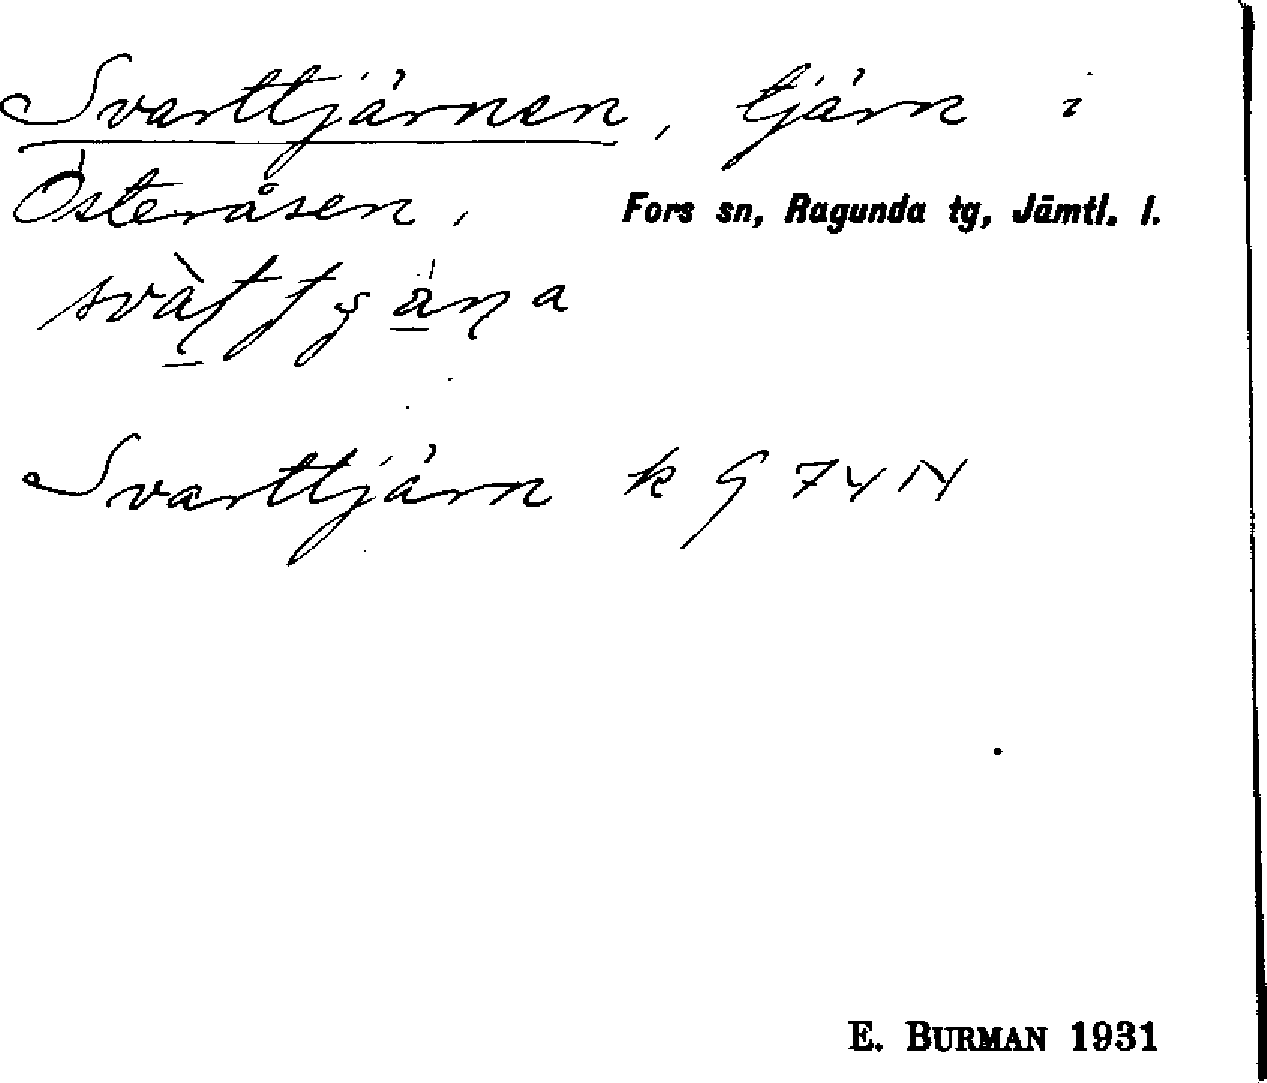 Svarttjärnen, tjärn i
Österåsen, Fors sn, Ragunda tg, Jämtl. l.
Svarttjärn k G 74 N
E. BURMAN 1931